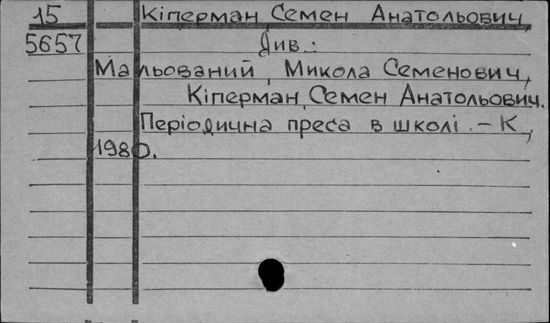 15 Кіперман Семен Анатольович,
5657 Див.:
Мальований, Микола Семенович,
Кіперман, Семен Анатольович.
Періодична преса в школі. – К.,
1980.